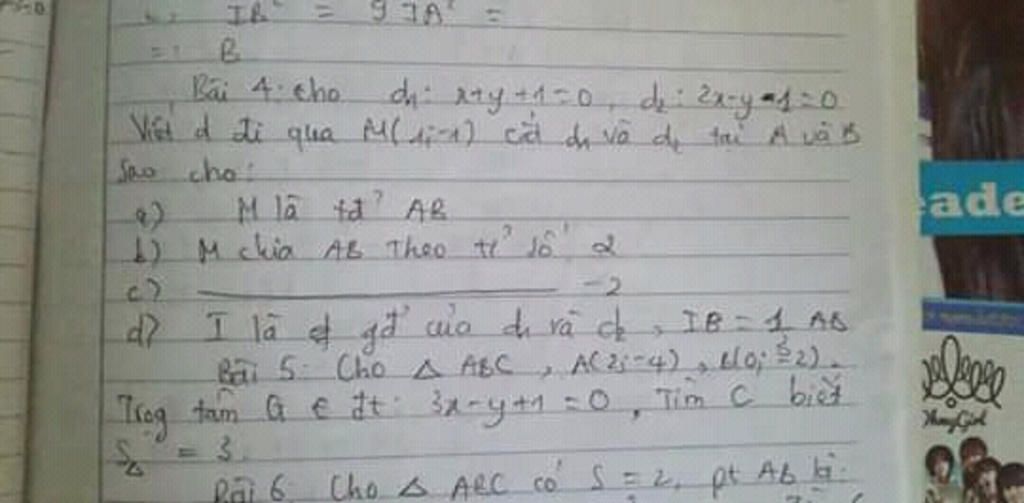 IB² = 9 IA² =
=: B
Bài 4: cho d₁: x+y+1=0, d₂: 2x-y-1=0
Viết d đi qua M(1;-1) cắt d₁ và d₂ tại A và B
sao cho:
a) M là tđ' AB
b) M chia AB theo tỉ số 2
c) -2
d) I là gđ' của d₁ và d₂, IB = 1 AB
Bài 5: Cho △ ABC, A(2;-4), B(0;-2).
Trog tâm G ∈ đt: 3x-y+1=0, Tìm C biết
S△ = 3
Bài 6: Cho △ ABC có S=2, pt AB là:
eade
YoungGirl